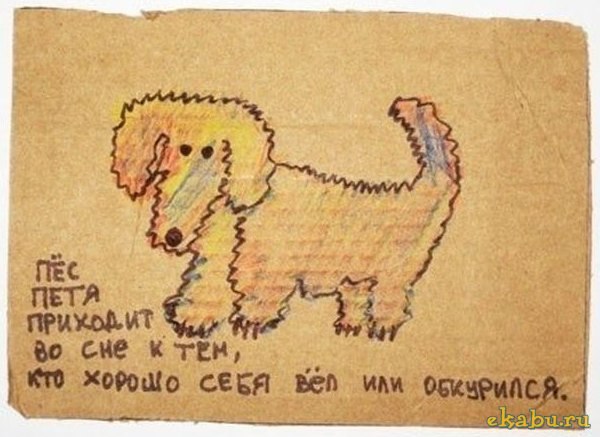 ПЁС
ПЕТЯ
ПРИХОДИТ
ВО СНЕ К ТЕМ,
КТО ХОРОШО СЕБЯ ВЁЛ ИЛИ ОБКУРИЛСЯ.
ekabu.ru